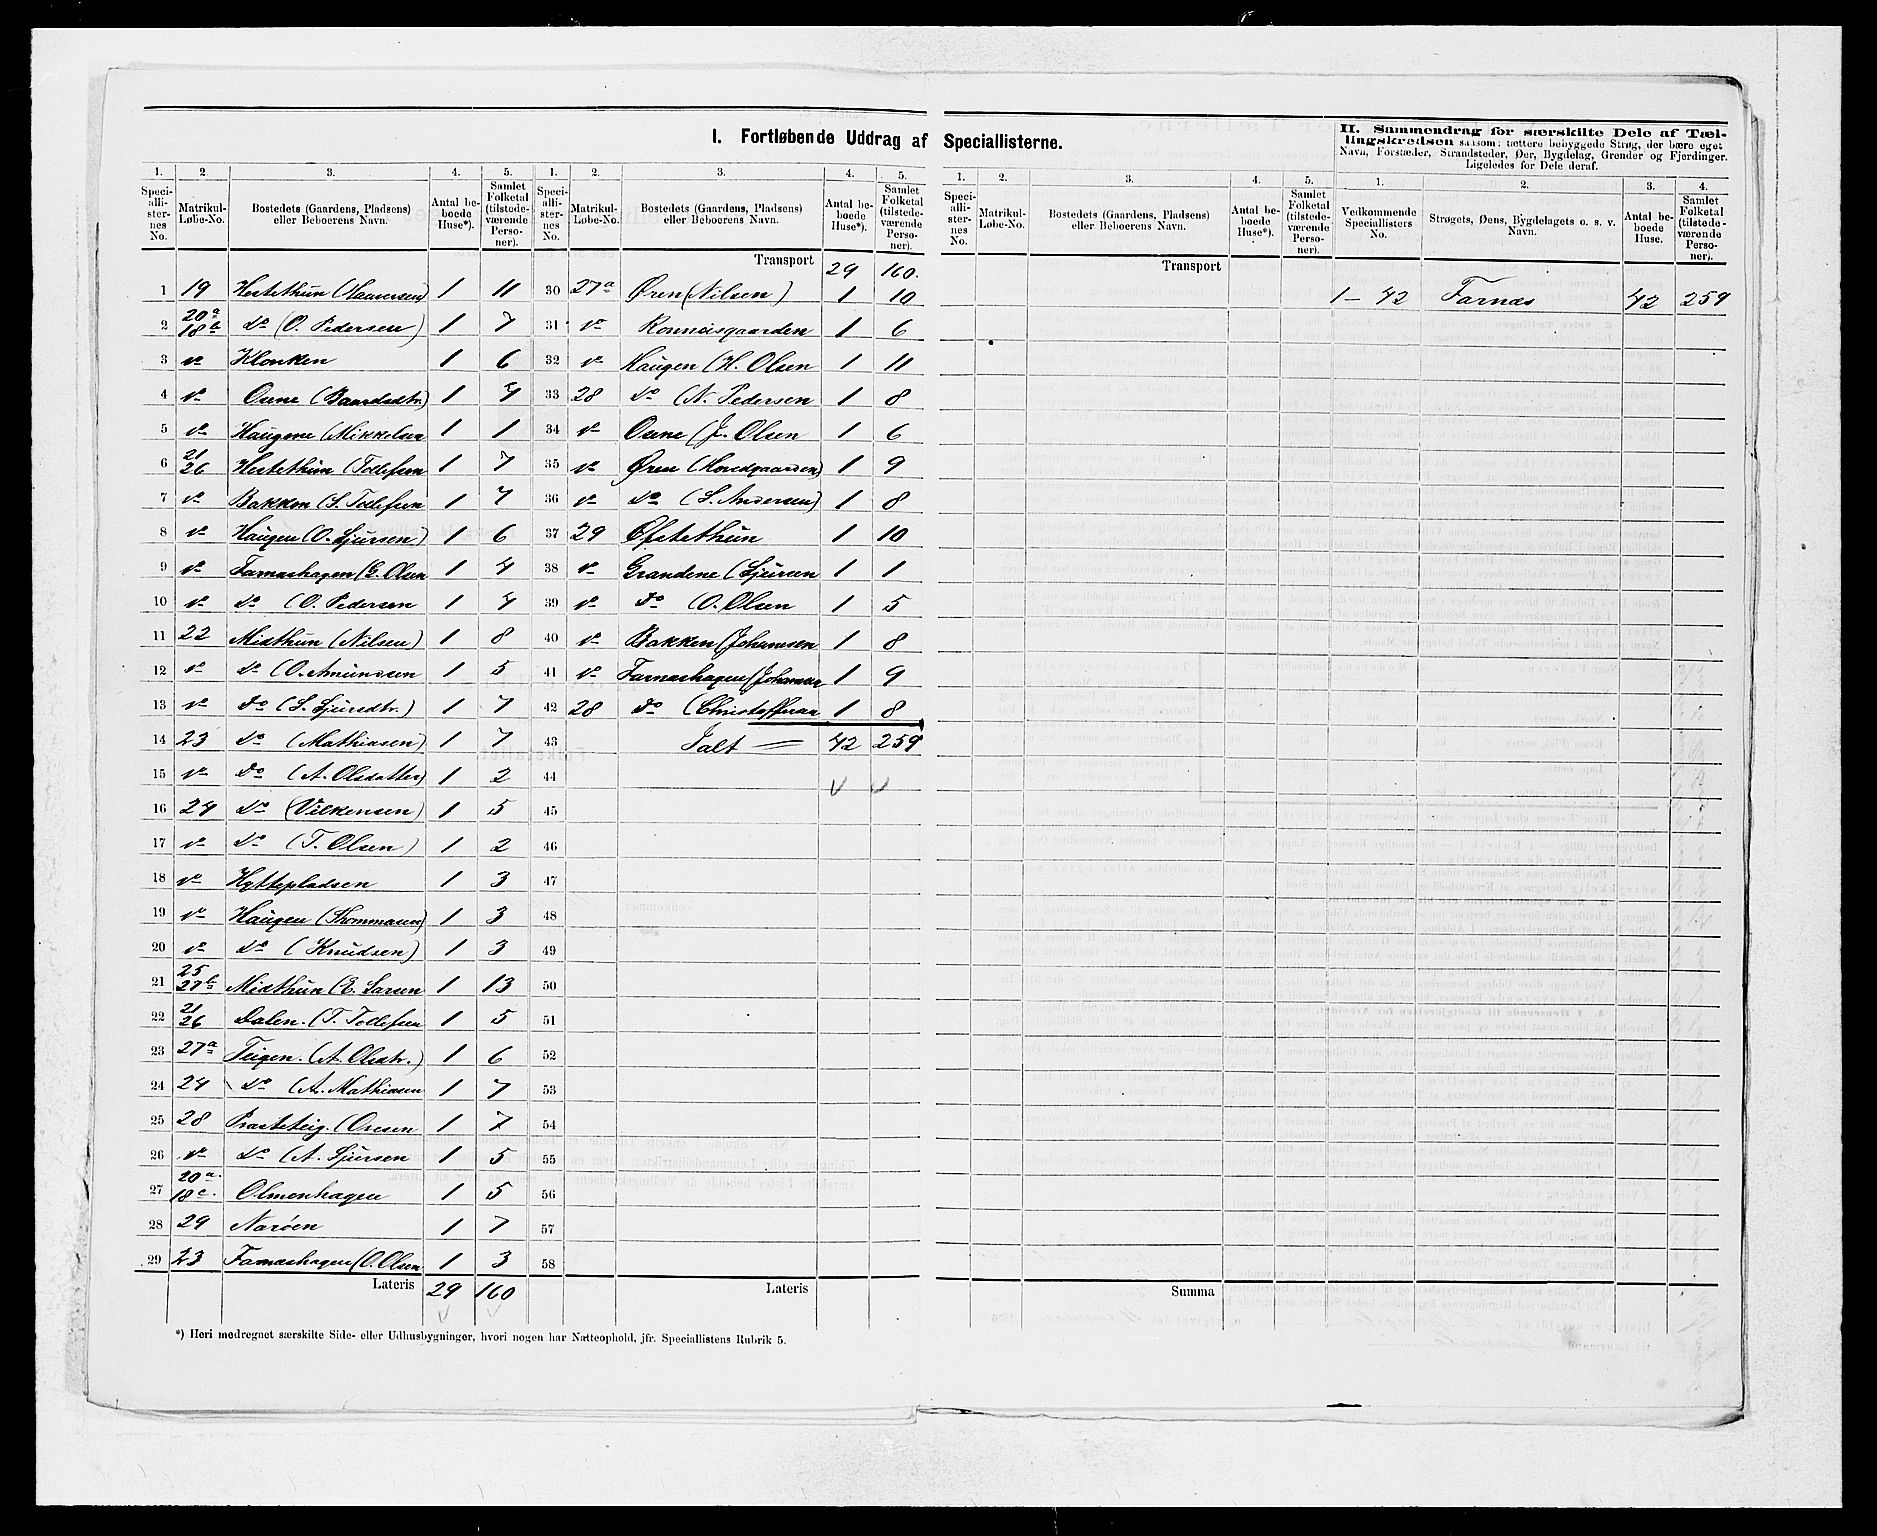 I. Fortløbende Uddrag af Speciallisterne.
II. Sammendrag for særskilte Dele af Tæl-
lingskredsen saasom: tættere bebyggede Strøg, der bære eget
Navn, Forstæder, Strandsteder, Øer, Bygdelag, Grender og Fjerdinger.
Ligeledes for Dele deraf.
1. 2 3. 4. 5. 1. 2. 3. 4. 5. 1. 2. 3. 4. 5. 1. 2. 3. 4.
Speciallisternes No. Matrikul-Løbe-No. Bostedets (Gaardens, Pladsens) eller Beboerens Navn. Antal beboede Huse*). Samlet Folketal (tilstedeværende Personer).
Speciallisternes No. Matrikul-Løbe-No. Bostedets (Gaardens, Pladsens) eller Beboerens Navn. Antal beboede Huse*). Samlet Folketal (tilstedeværende Personer).
Speciallisternes No. Matrikul-Løbe-No. Bostedets (Gaardens, Pladsens) eller Beboerens Navn. Antal beboede Huse*). Samlet Folketal (tilstedeværende Personer).
Vedkommende Speciallisters No. Strøgets, Øens, Bygdelagets o. s. v. Navn. Antal beboede Huse. Samlet Folketal (tilstedeværende Personer).
1 19 Hestethun 1 11
2 20a 18b do (O. Pedersen) 1 7
3 do Klonken 1 6
4 do Osene (Baardsdtr) 1 4
5 do Haugene (Mikkelsen 1 1
6 21 26 Hestethun (Tollefsen 1 7
7 do Bakken (S. Tollefsen 1 7
8 do Haugen (O. Sjursen) 1 6
9 do Farnashagen (G. Olsen 1 4
10 do do (O. Pedersen 1 4
11 22 Midthun (Nilsen) 1 8
12 do do (O. Amundsen 1 5
13 do do (S. Sjursdtr.) 1 7
14 23 do (Mathiasen) 1 7
15 do do (A. Olsdatter) 1 2
16 24 do (Vilkensen) 1 5
17 do do (T. Olsen) 1 2
18 do Hyttepladsen 1 3
19 do Haugen (Thommasen) 1 3
20 do do (Knudsen) 1 3
21 25 27b Midthun (E. Larsen 1 13
22 21 26 Dalen. (T. Tollefsen 1 5
23 27a Teigen. (A. Olsdtr.) 1 6
24 24 do (A. Mathiasen 1 7
25 28 Præsteteig. 1 7
26 do do (A. Sjursen 1 5
27 20a. 18c. Olmenhagen 1 5
28 29 Narøen 1 7
29 23 Farnashagen (O. Olsen 1 3
Lateris 29 160
Transport 29 160.
30 27a Øren (Nilsen) 1 10
31 do 1 6
32 do Haugen (H. Olsen 1 11
33 28 do (N. Pedersen 1 8
34 do Osene (J. Olsen 1 6
35 do Øren 1 9
36 do do (S. Andersen) 1 8
37 29 Øfstethun 1 10
38 do Grandene (Sjursen 1 1
39 do do (O. Olsen 1 5
40 do Bakken (Johannsen 1 8
41 do Farnashagen (Johannsen 1 9
42 28 do (Christoffersen 1 8
43 Ialt = 42 259
44
45
46
47
48
49
50
51
52
53
54
55
56
57
58
Lateris
Transport
Summa
1 – 42 Farnæs 42 259
*) Heri medregnet særskilte Side- eller Udhusbygninger, hvori nogen har Natteophold, jfr. Speciallistens Rubrik 5.